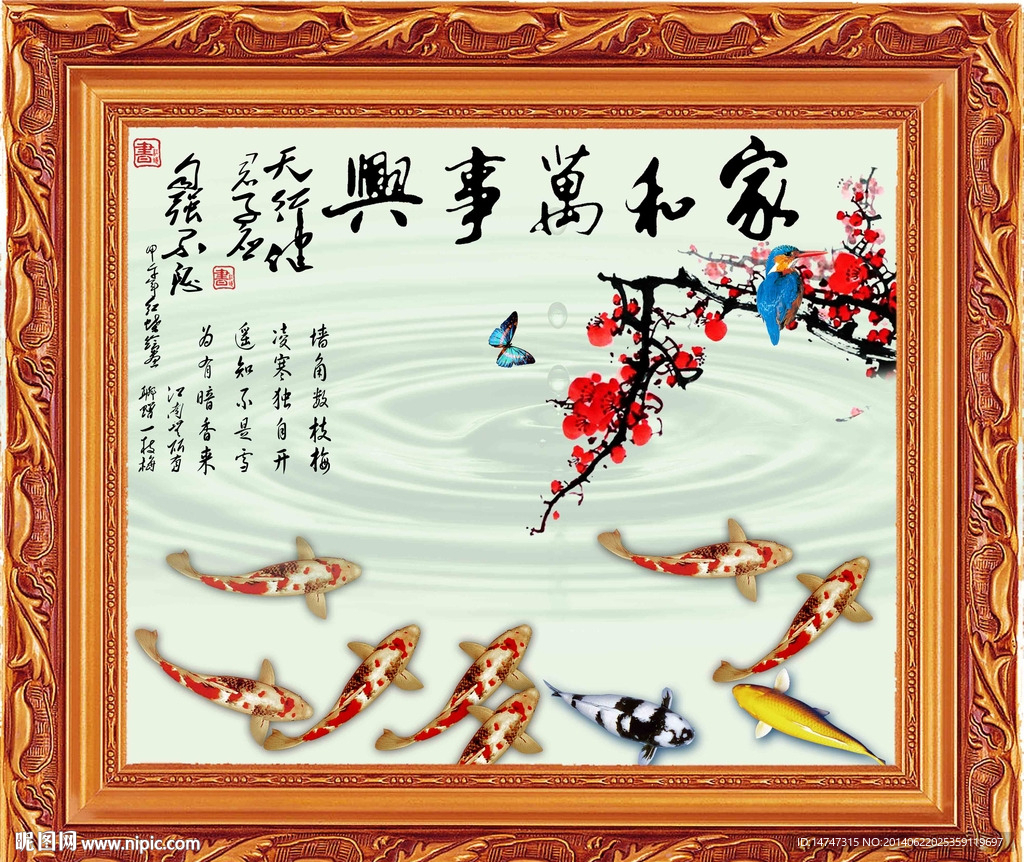 家和萬事興
天行健
君子以
自强不息
書
書
墙角数枝梅
凌寒独自开
遥知不是雪
为有暗香来
江南无所有
聊赠一枝梅
昵图网 www.nipic.com
ID:14747315 NO:20140622025359119697